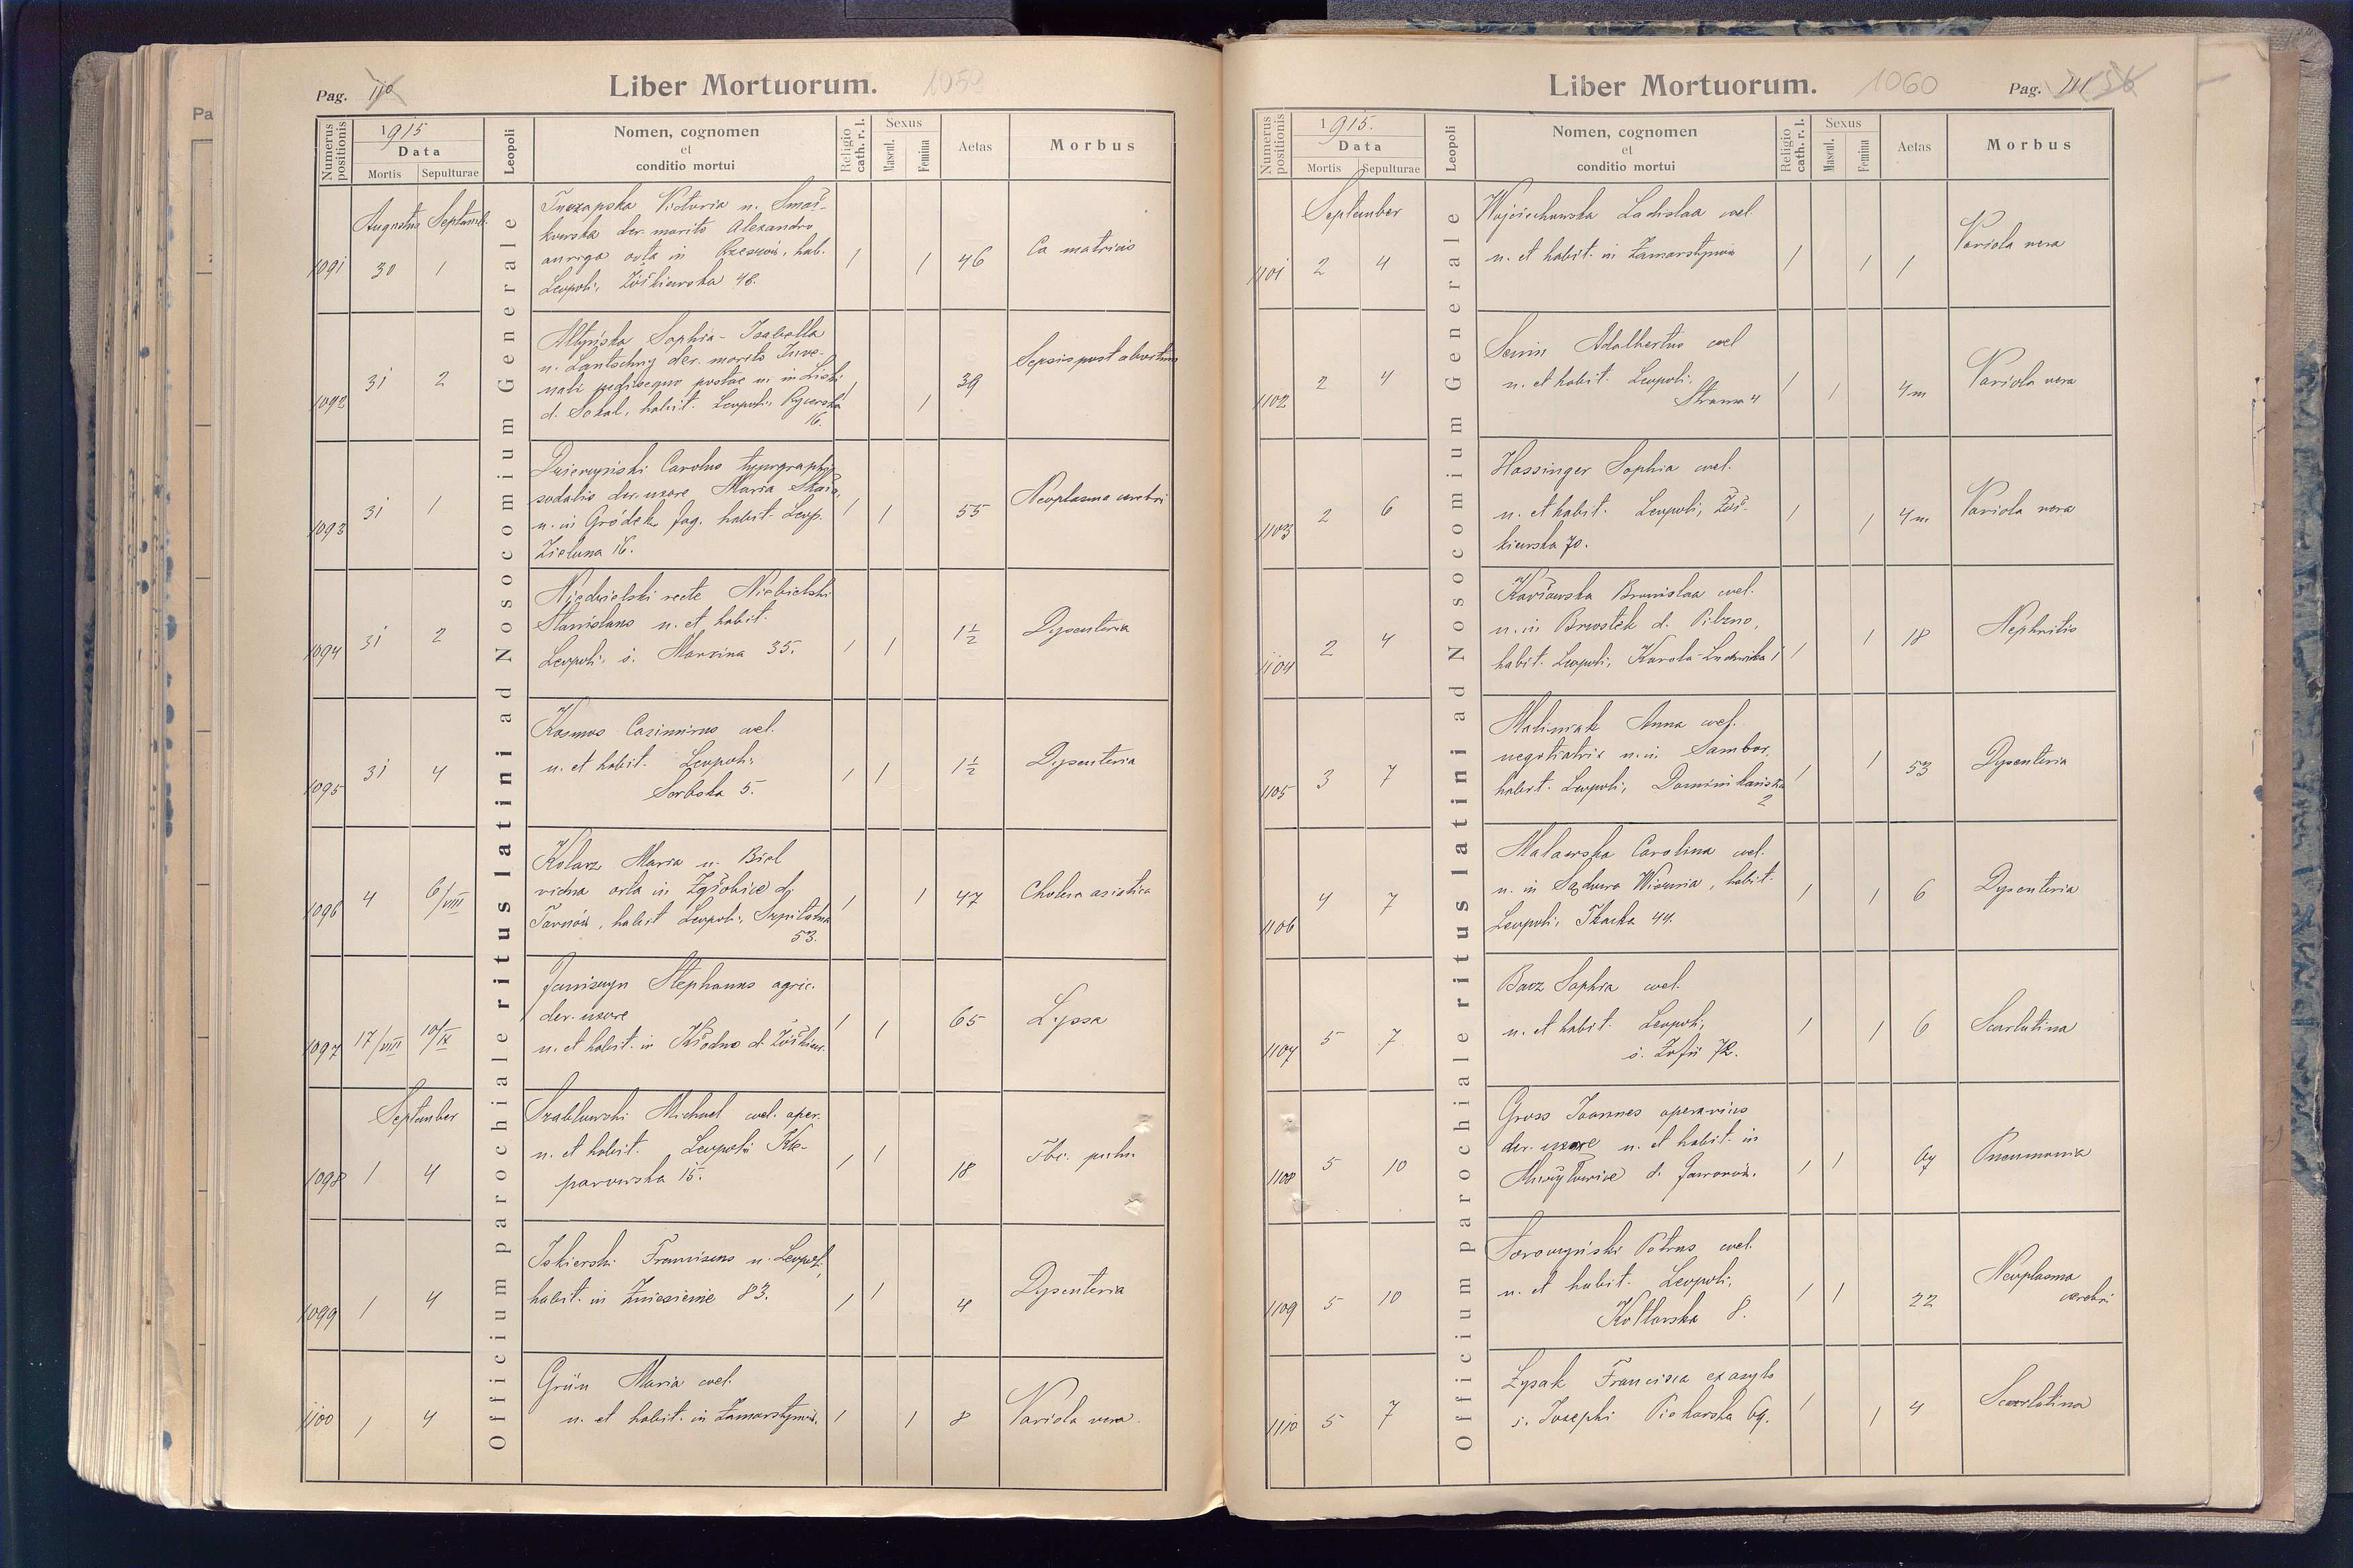 Pag. 110
Liber Mortuorum. 1059
Numerus positionis
1915
Data
Mortis Sepulturae
Leopoli
Nomen, cognomen
et
conditio mortui
Religio cath. r. l.
Sexus
Mascul. Femina
Aetas
Morbus
Officium parochiale ritus latini ad Nosocomium Generale
Augustus Septemb.
Victoria n.
der. marito Alexandro
auriga orta in Rzeszów, hab.
Leopoli, Żółkiewska 48.
1091 30 1 1 1 46 Ca matricis
Sophia-Isabella
n. der. marito Juve-
nali pedisequo postae n. in
d. Sokal, habit. Leopoli, Rycerska
16.
1092 31 2 1 1 39 Sepsis post abortum
Carolus typographiae
sodalis der. uxore Maria
n. in Gródek Jag. habit. Leop.
Zielona 16.
1093 31 1 1 1 55 Neoplasma cerebri
Niedzielski recte Niebielski
Stanislaus n. et habit.
Leopoli, ś. Marcina 35.
1094 31 2 1 1 1½ Dysenteria
Kosmos Casimirus cael.
n. et habit. Leopoli,
Serbska 5.
1095 31 4 1 1 1½ Dysenteria
Kolarz Maria n. Biel
vidua orta in Zgłobice d.
Tarnów, habit Leopoli, Szpitalna
53.
1096 4 6/VIII 1 1 47 Cholera asiatica
Stephanus agric.
der. uxore
n. et habit. in Kłodno d. Żółkiew.
1097 17/VIII 10/IX 1 1 65 Lyssa
September
Szablowski Michael cael. oper.
n. et habit. Leopoli Kle-
parowska 15.
1098 1 4 1 1 18 Tbc. pulm.
Iskierski Franciscus n. Leopoli,
habit. in Zniesienie 83.
1099 1 4 1 1 4 Dysenteria
Grün Maria cael.
n. et habit. in Zamarstynów.
1100 1 4 1 1 8 Variola vera.
Liber Mortuorum. 1060
Pag. 111 56
Numerus positionis
1915.
Data
Mortis Sepulturae
Leopoli
Nomen, cognomen
et
conditio mortui
Religio cath. r. l.
Sexus
Mascul. Femina
Aetas
Morbus
Officium parochiale ritus latini ad Nosocomium Generale
September
Wojciechowska Ladislaa cael.
n. et habit. in Zamarstynów
1101 2 4 1 1 1 Variola vera
Adalbertus cael
n. et habit. Leopoli,
Stroma 4
1102 2 4 1 1 4m Variola vera
Hassinger Sophia cael.
n. et habit. Leopoli, Żół-
kiewska 70.
1103 2 6 1 1 4m Variola vera
Bronislaa cael.
n. in Brzostek d. Pilzno,
habit. Leopoli, Karola-Ludwika 1
1104 2 4 1 1 18 Nephritis
Maliniak Anna cael.
negotiatrix n. in Sambor,
habit. Leopoli, Dominikańska
2
1105 3 7 1 1 53 Dysenteria
Malawska Carolina cael.
n. in Sądowa Wisznia, habit.
Leopoli, Tkacka 44.
1106 4 7 1 1 6 Dysenteria
Sophia cael.
n. et habit. Leopoli,
ś. Zofii 72.
1107 5 7 1 1 6 Scarlatina
Gross Joannes operarius
der. uxore n. et habit. in
d. Jaworów.
1108 5 10 1 1 67 Pneumonia
Petrus cael.
n. et habit. Leopoli,
Kotlarska 8.
1109 5 10 1 1 22 Neoplasma
cerebri
Łysak Francisca ex asylo
s. Josephi Piekarska 69.
1110 5 7 1 1 4 Scarlatina